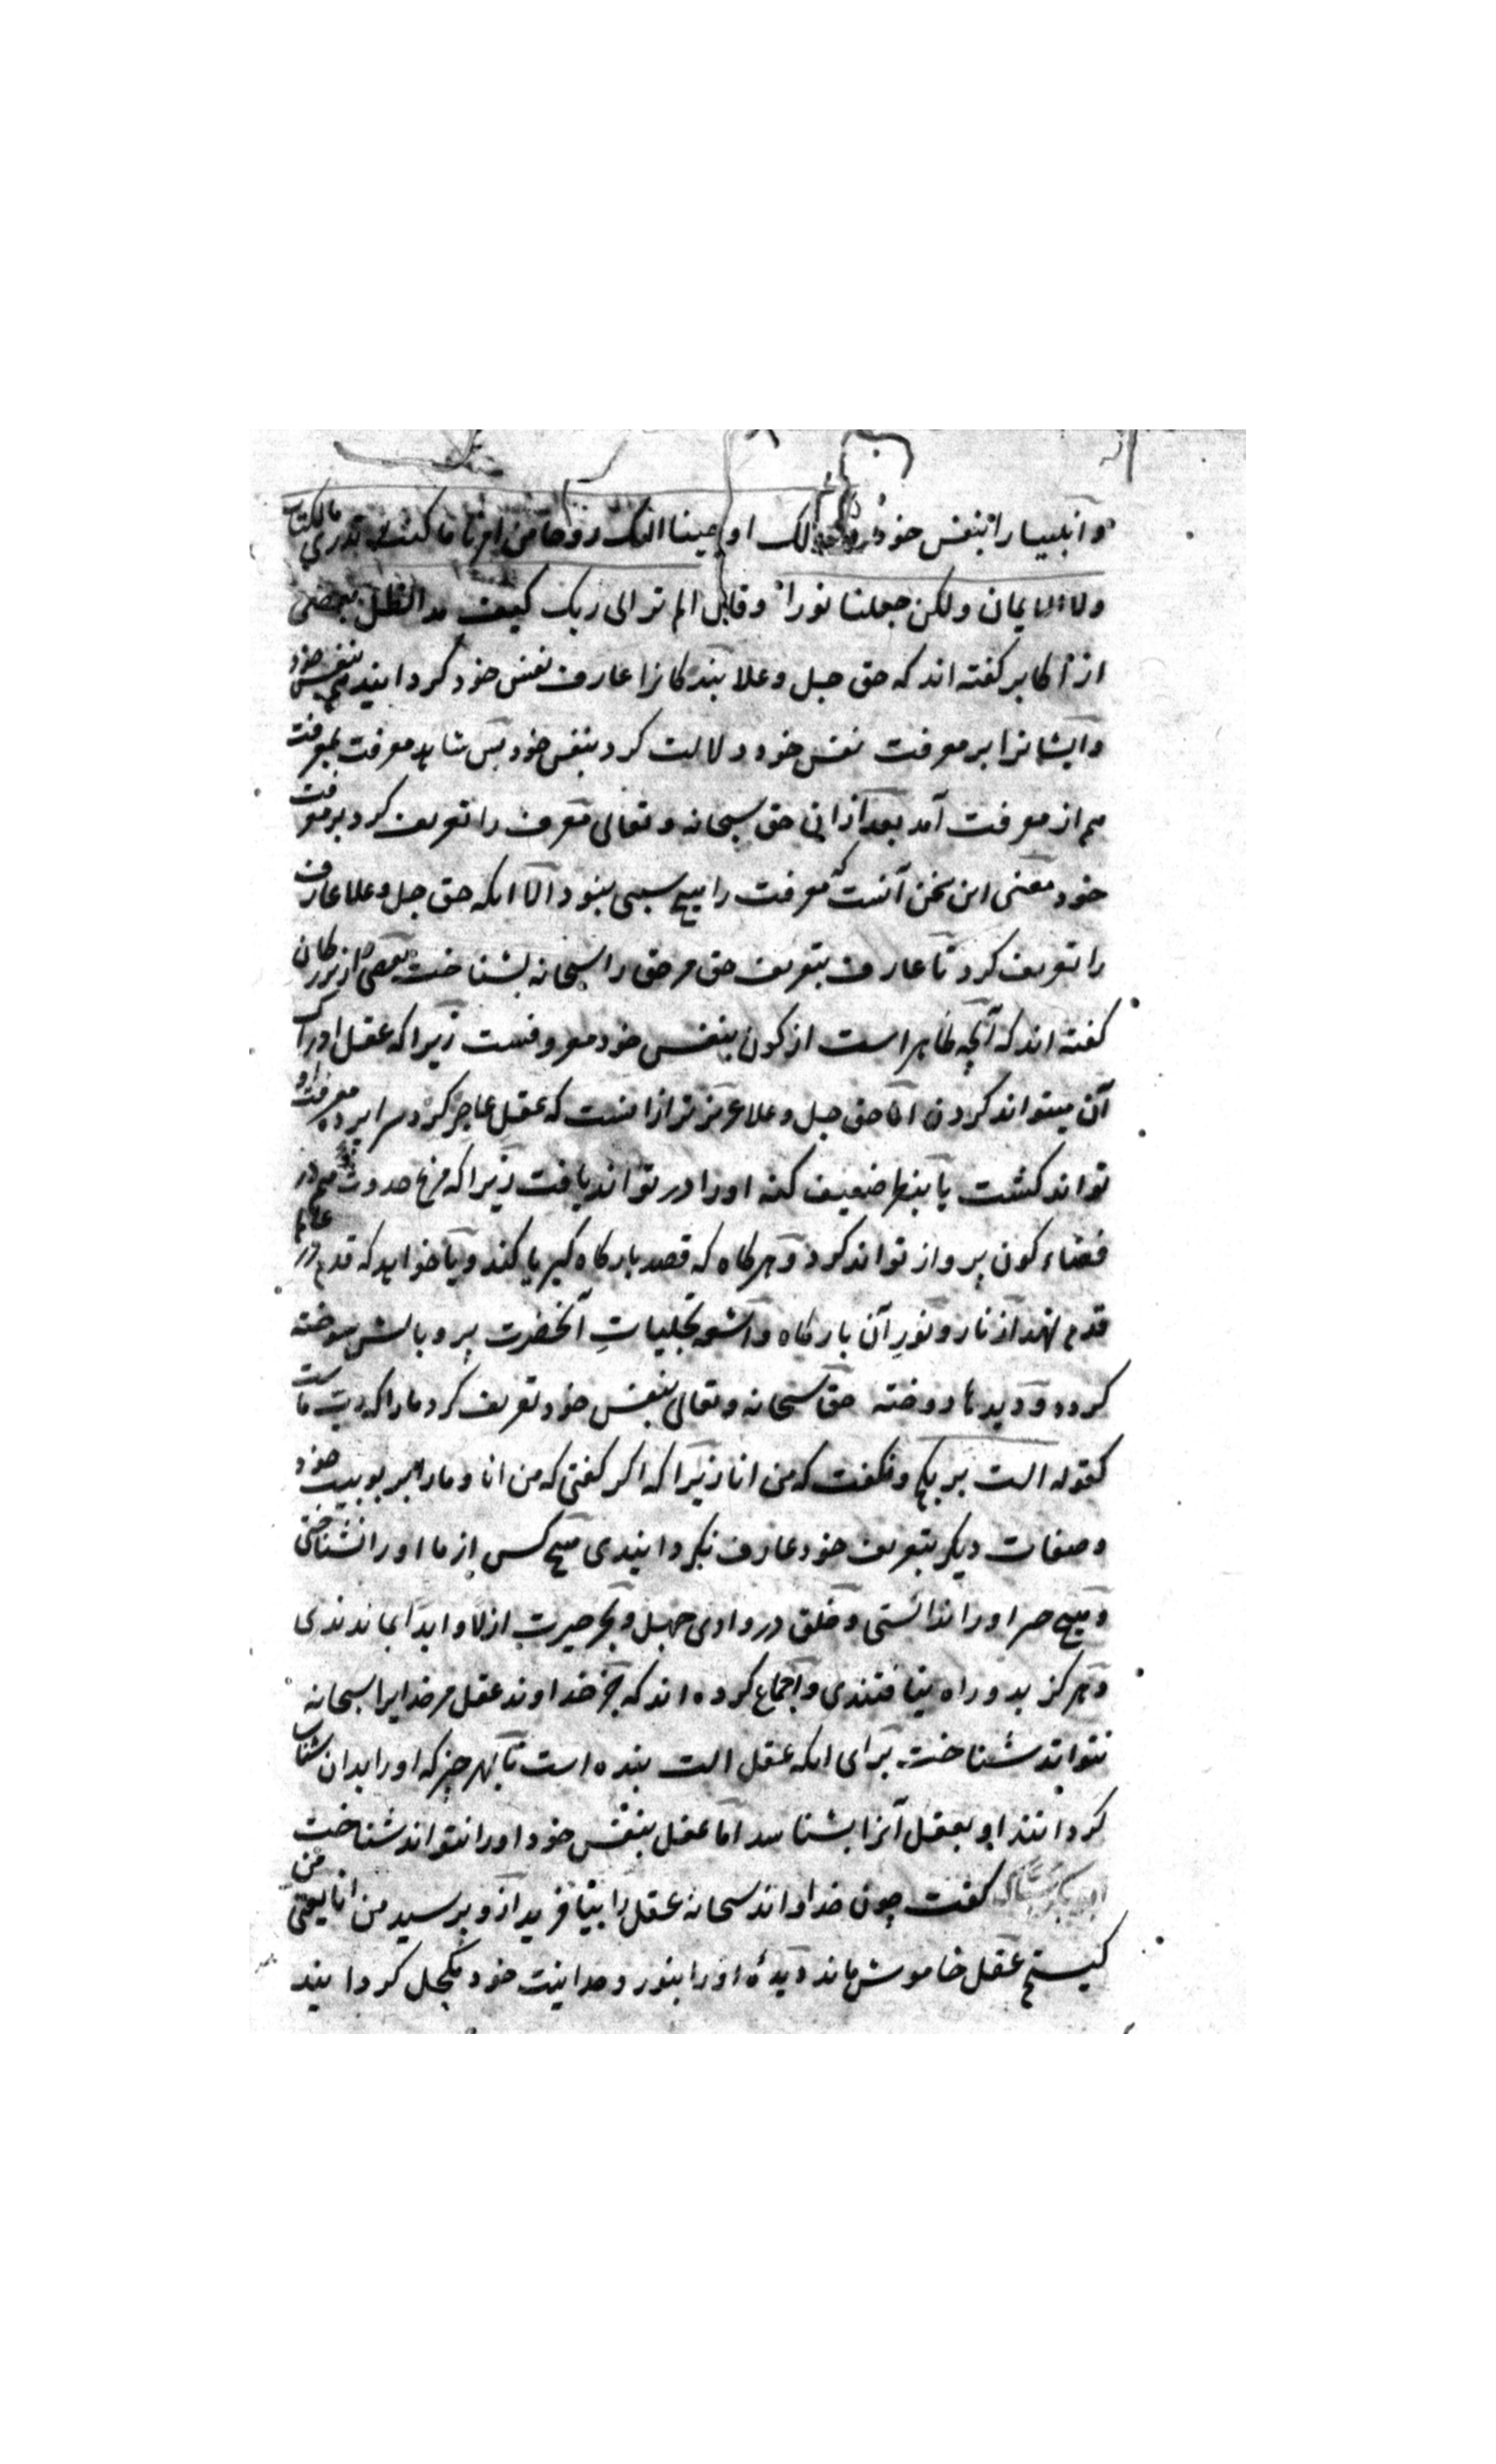 و انبیا را بنفس خود کذلک اوحینا الیک روحا من امرنا ما کنت تدری ما الکتاب
ولا الایمان ولکن جعلنا نورا و قال الم تر الی ربک کیف مد الظل بعضی
از اکابر کفته اند که حق جل وعلا بندکانرا عارف نفس خود کردانید هم بنفس خود
و ایشانرا بر معرفت نفس خود دلالت کرد بنفس خود پس شاهد معرفت بمعرفت
هم از معرفت آمد بعد ازانی حق سبحانه و تعالی معرف را تعریف کرد بر معرفت
خود معنی این سخن آنست که معرفت را هیچ سببی نبود الا انکه حق جل وعلا عارف
را تعریف کرد تا عارف بتعریف حق مر حق را سبحانه بشناخت بعضی از بزرکان
کفته اند که آنچه ظاهر است از کون بنفس خود معروفست زیرا که عقل ادراک
آن میتواند کردن اما حق جل وعلا عزیزتر ازانست که عقل عاجز کرد سراپرده معرفت او
تواند کشت یا بنظر ضعیف کنه اورا در تواند یافت زیرا که مرغ حدوث هم در
فضاء کون پرواز تواند کرد و هرکاه که قصد بارکاه کبریا کند و یا خواهد که قدم در عالم
قدم نهد از نار و نور آن بارکاه و اشعه تجلیات آنحضرت پر و بالش سوخته
کردد و دیدها دوخته حق سبحانه و تعالی بنفس خود تعریف کرد ما را که رب ماست
کقوله الست بربکم و نکفت که من انا زیرا که اکر کفتی که من انا و ما را بر ربوبیت خود
و صفات دیکر بتعریف خود عارف نکردانیدی هیچ کس از ما اورا نشناختی
و هیچ مر اورا ندانستی و خلق در وادی جهل و بحر حیرت ازلا و ابدا بماندندی
و هرکز بدو راه نیافتندی و اجماع کرده اند که جز خداوند عقل مر خدایرا سبحانه
نتواند شناخت برای انکه عقل الت بنده است تا بهر چیز که اورا بدان شناسا
کردانند او بعقل آنرا بشناسد اما عقل بنفس خود اورا نتواند شناخت
کفت چون خداوند سبحانه عقل را بیافرید ازو پرسید من انا یعنی من
کیستم عقل خاموش ماند دیدهٔ اورا بنور وحدانیت خود مکحل کردانید